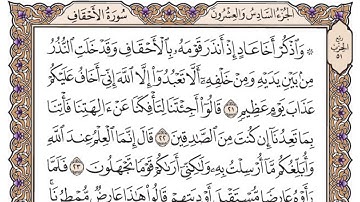 سُورَةُ الأَحْقَافِ
الجُزْءُ السَّادِسُ وَالعِشْرُونَ
۞ وَاذْكُرْ أَخَا عَادٍ إِذْ أَنذَرَ قَوْمَهُ بِالْأَحْقَافِ وَقَدْ خَلَتِ النُّذُرُ
مِن بَيْنِ يَدَيْهِ وَمِنْ خَلْفِهِ أَلَّا تَعْبُدُوا إِلَّا اللَّهَ إِنِّي أَخَافُ عَلَيْكُمْ
عَذَابَ يَوْمٍ عَظِيمٍ ٢١ قَالُوا أَجِئْتَنَا لِتَأْفِكَنَا عَنْ ءَالِهَتِنَا فَأْتِنَا
بِمَا تَعِدُنَا إِن كُنتَ مِنَ الصَّادِقِينَ ٢٢ قَالَ إِنَّمَا الْعِلْمُ عِندَ اللَّهِ
وَأُبَلِّغُكُم مَّا أُرْسِلْتُ بِهِ وَلَٰكِنِّي أَرَىٰكُمْ قَوْمًا تَجْهَلُونَ ٢٣ فَلَمَّا
رَأَوْهُ عَارِضًا مُّسْتَقْبِلَ أَوْدِيَتِهِمْ قَالُوا هَٰذَا عَارِضٌ مُّمْطِرُنَا
الحزب
٥١